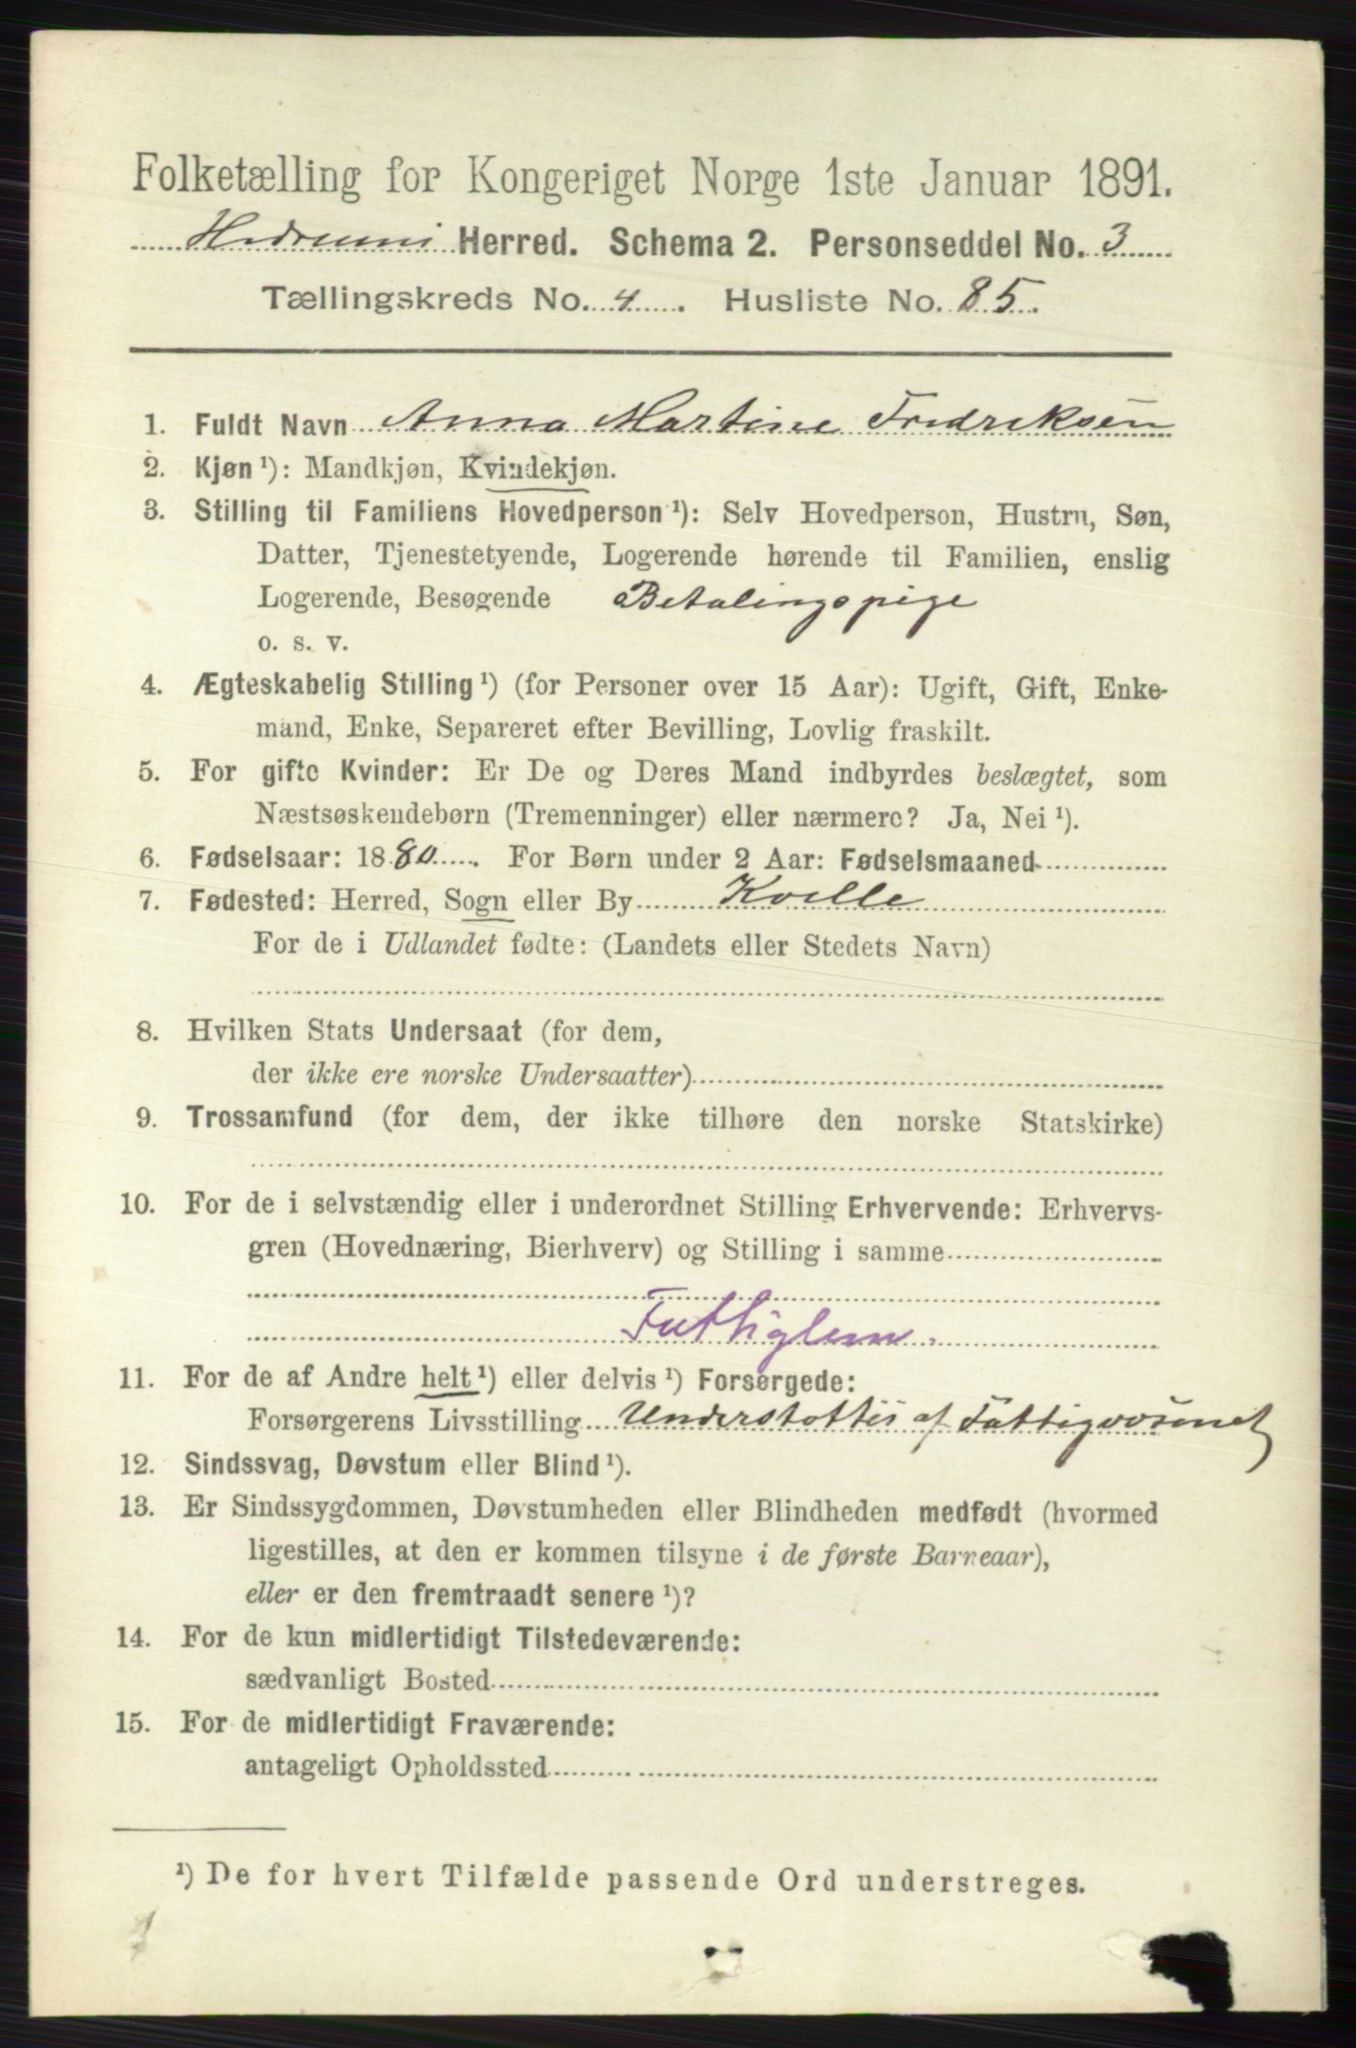 Folketælling for Kongeriget Norge 1ste Januar 1891.
Hedrum Herred. Schema 2. Personseddel No. 3
Tællingskreds No. 4. Husliste No. 85.
1. Fuldt Navn Anna Martine Fredriksen
2. Kjøn ¹): Mandkjøn, Kvindekjøn.
3. Stilling til Familiens Hovedperson ¹): Selv Hovedperson, Hustru, Søn,
Datter, Tjenestetyende, Logerende hørende til Familien, enslig
Logerende, Besøgende Betalingspige
o. s. v.
4. Ægteskabelig Stilling ¹) (for Personer over 15 Aar): Ugift, Gift, Enke-
mand, Enke, Separeret efter Bevilling, Lovlig fraskilt.
5. For gifte Kvinder: Er De og Deres Mand indbyrdes beslægtet, som
Næstsøskendebørn (Tremenninger) eller nærmere? Ja, Nei ¹).
6. Fødselsaar: 1880. For Børn under 2 Aar: Fødselsmaaned
7. Fødested: Herred, Sogn eller By Kvelle
For de i Udlandet fødte: (Landets eller Stedets Navn)
8. Hvilken Stats Undersaat (for dem,
der ikke ere norske Undersaatter)
9. Trossamfund (for dem, der ikke tilhøre den norske Statskirke)
10. For de i selvstændig eller i underordnet Stilling Erhvervende: Erhvervs-
gren (Hovednæring, Bierhverv) og Stilling i samme
Fattiglem.
11. For de af Andre helt ¹) eller delvis ¹) Forsørgede:
Forsørgerens Livsstilling Understøttes af Fattigvæsenet
12. Sindssvag, Døvstum eller Blind ¹).
13. Er Sindssygdommen, Døvstumheden eller Blindheden medfødt (hvormed
ligestilles, at den er kommen tilsyne i de første Barneaar),
eller er den fremtraadt senere ¹)?
14. For de kun midlertidigt Tilstedeværende:
sædvanligt Bosted
15. For de midlertidigt Fraværende:
antageligt Opholdssted
¹) De for hvert Tilfælde passende Ord understreges.